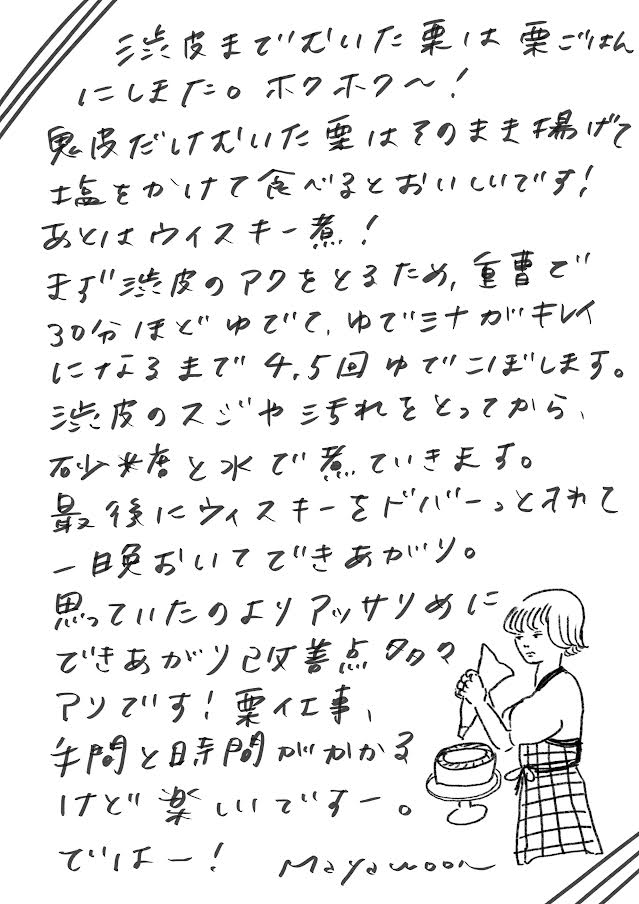 渋皮までむいた栗は栗ごはん
にしました。ホクホク〜!
鬼皮だけむいた栗はそのまま揚げて
塩をかけて食べるとおいしいです!
あとはウィスキー煮!
まず渋皮のアクをとるため、重曹で
30分ほどゆでて、ゆでミナがキレイ
になるまで4,5回ゆでこぼします。
渋皮のスジや汚れをとってから、
砂糖と水で煮ていきます。
最後にウィスキーをドバーっと入れて
一晩おいてできあがり。
思っていたのよりアッサリめに
できあがり改善点多々
アリです!栗仕事、
手間と時間がかかる
けど楽しいですー。
ではー! Mayamoon